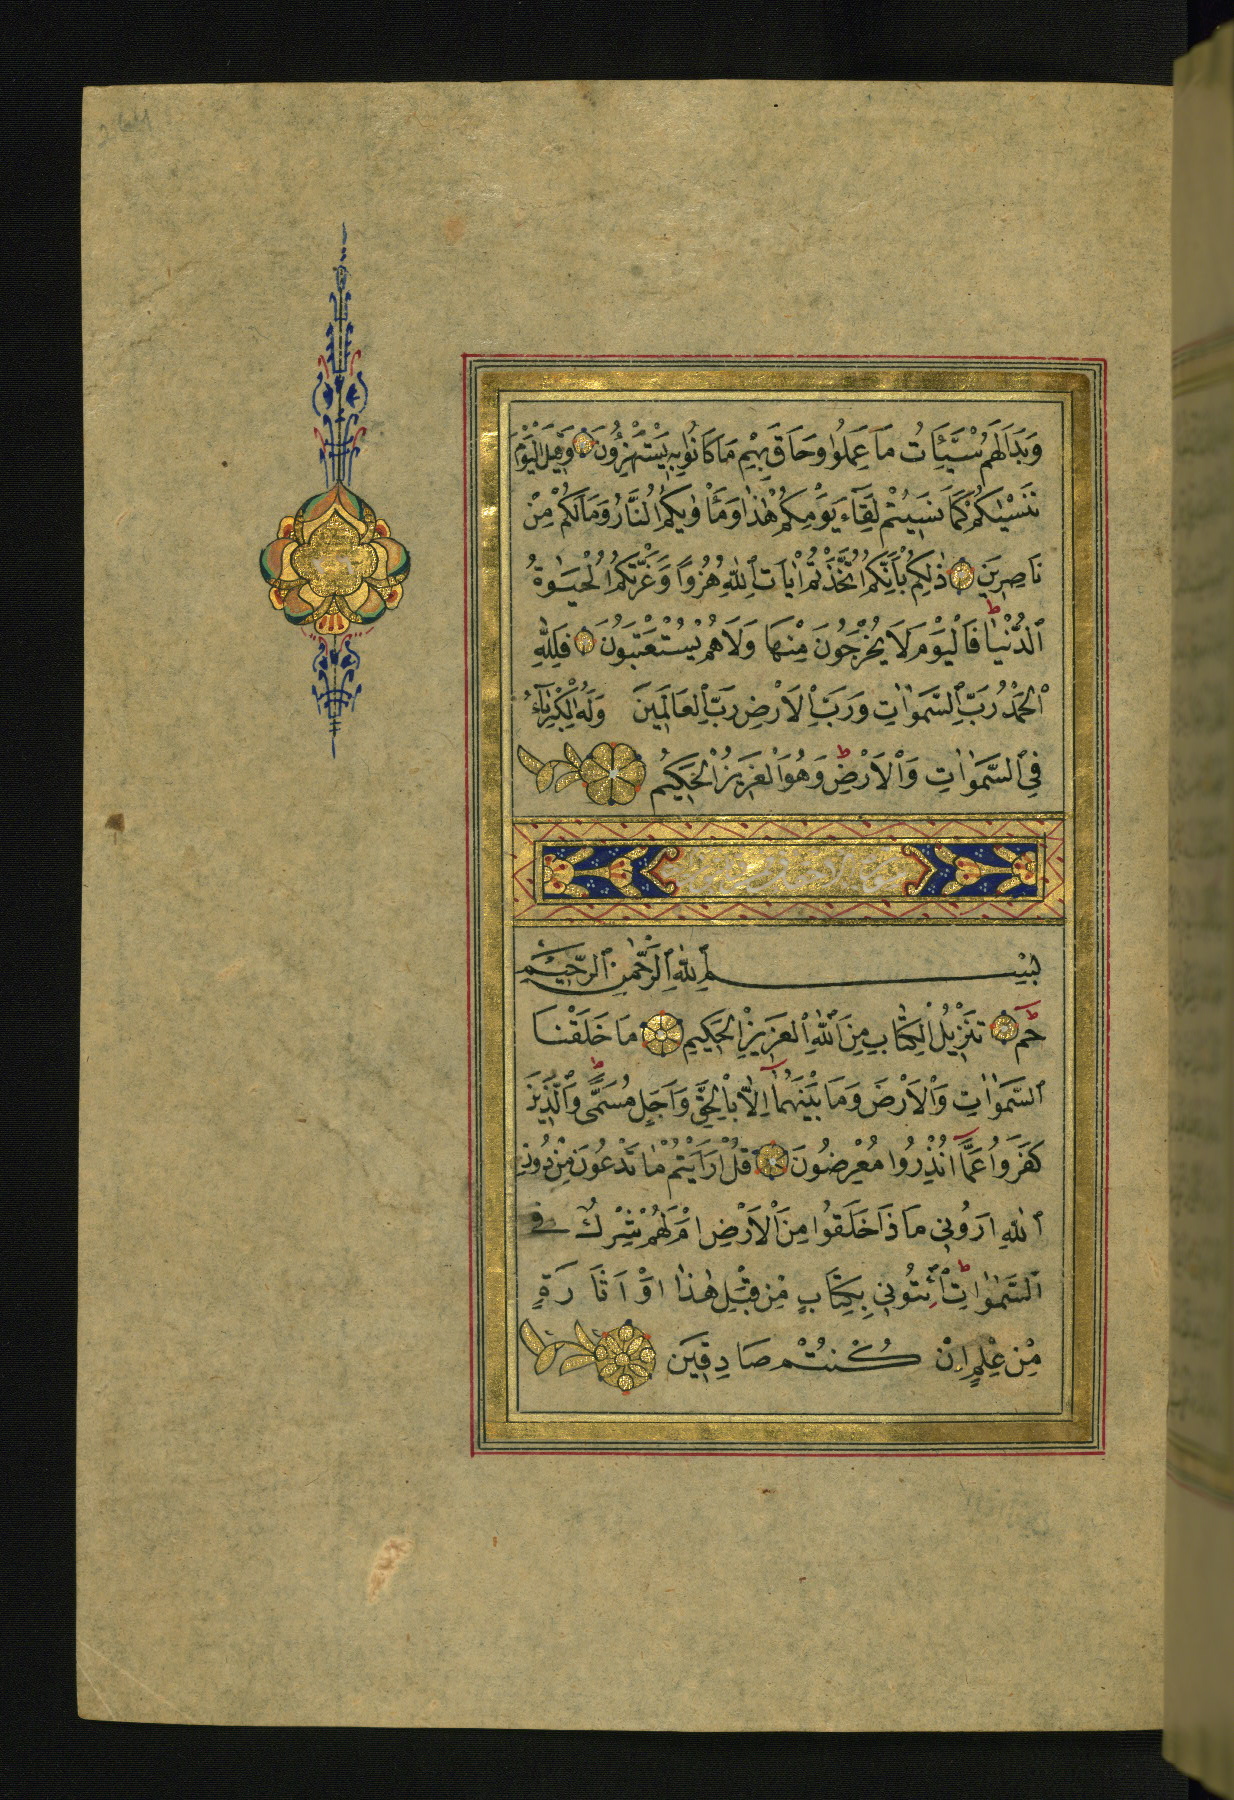 وَبَدَا لَهُمْ سَيِّئَاتُ مَا عَمِلُوا وَحَاقَ بِهِمْ مَا كَانُوا بِهِ يَسْتَهْزِؤُنَ وَقِيلَ الْيَوْمَ
نَنْسٰيكُمْ كَمَا نَسِيتُمْ لِقَآءَ يَوْمِكُمْ هٰذَا وَمَأْوٰيكُمُ النَّارُ وَمَا لَكُمْ مِنْ
نَاصِرِينَ ذٰلِكُمْ بِأَنَّكُمُ اتَّخَذْتُمْ اٰيَاتِ اللهِ هُزُوًا وَغَرَّتْكُمُ الْحَيٰوةُ
الدُّنْيَا ط فَالْيَوْمَ لَا يُخْرَجُونَ مِنْهَا وَلَا هُمْ يُسْتَعْتَبُونَ فَلِلّٰهِ
الْحَمْدُ رَبِّ السَّمٰوَاتِ وَرَبِّ الْاَرْضِ رَبِّ الْعَالَمِينَ وَلَهُ الْكِبْرِيَآءُ
فِي السَّمٰوَاتِ وَالْاَرْضِ ط وَهُوَ الْعَزِيزُ الْحَكِيمُ
سورة الاحقاف
بِسْمِ اللهِ الرَّحْمٰنِ الرَّحِيمِ
حٰمٓ ط تَنْزِيلُ الْكِتَابِ مِنَ اللهِ الْعَزِيزِ الْحَكِيمِ مَا خَلَقْنَا
السَّمٰوَاتِ وَالْاَرْضَ وَمَا بَيْنَهُمَآ اِلَّا بِالْحَقِّ وَاَجَلٍ مُسَمًّى ط وَالَّذِينَ
كَفَرُوا عَمَّآ اُنْذِرُوا مُعْرِضُونَ قُلْ اَرَاَيْتُمْ مَا تَدْعُونَ مِنْ دُونِ
اللهِ اَرُونِي مَاذَا خَلَقُوا مِنَ الْاَرْضِ اَمْ لَهُمْ شِرْكٌ فِي
السَّمٰوَاتِ ط ائْتُونِي بِكِتَابٍ مِنْ قَبْلِ هٰذَا اَوْ اَثَارَةٍ
مِنْ عِلْمٍ اِنْ كُنْتُمْ صَادِقِينَ